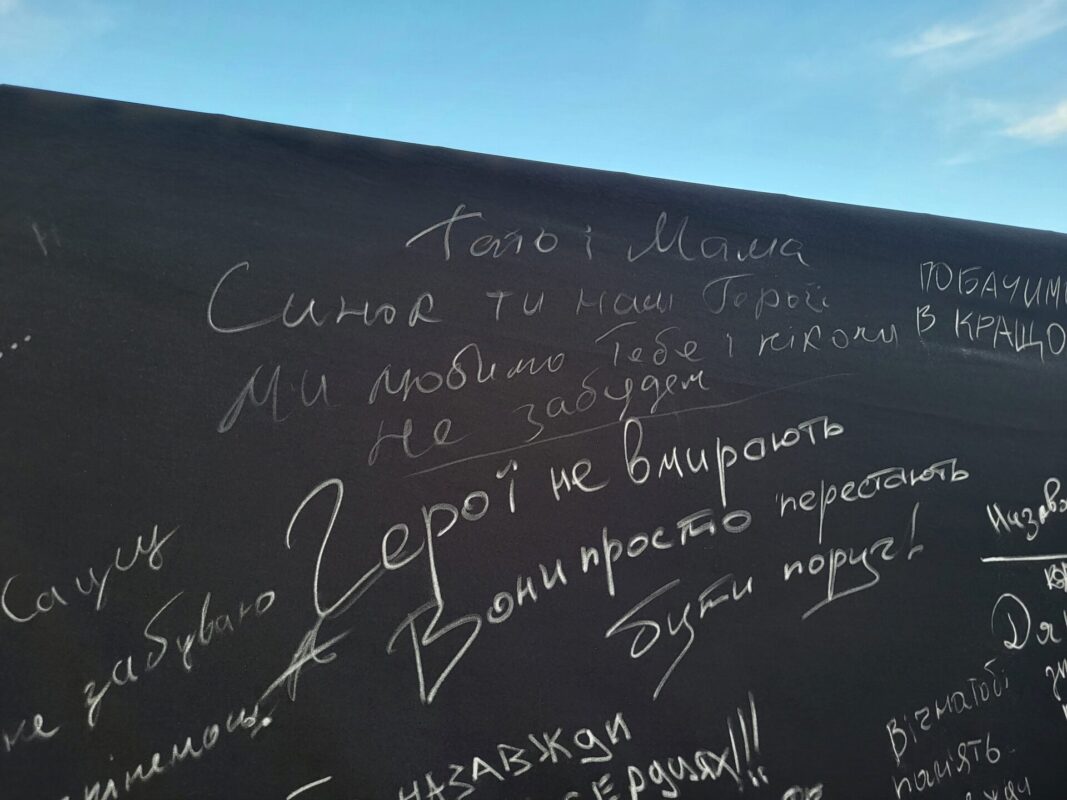 Тато і Мама
Синок ти наш Герой
Ми любимо Тебе і ніколи
не забудем
ПОБАЧИМ
В КРАЩО
Герої не вмирають
А Вони просто перестають
бути поруч!
не забуваю
НАЗАВЖДИ
СЕРЦЯХ!!!
Вічна тобі
память